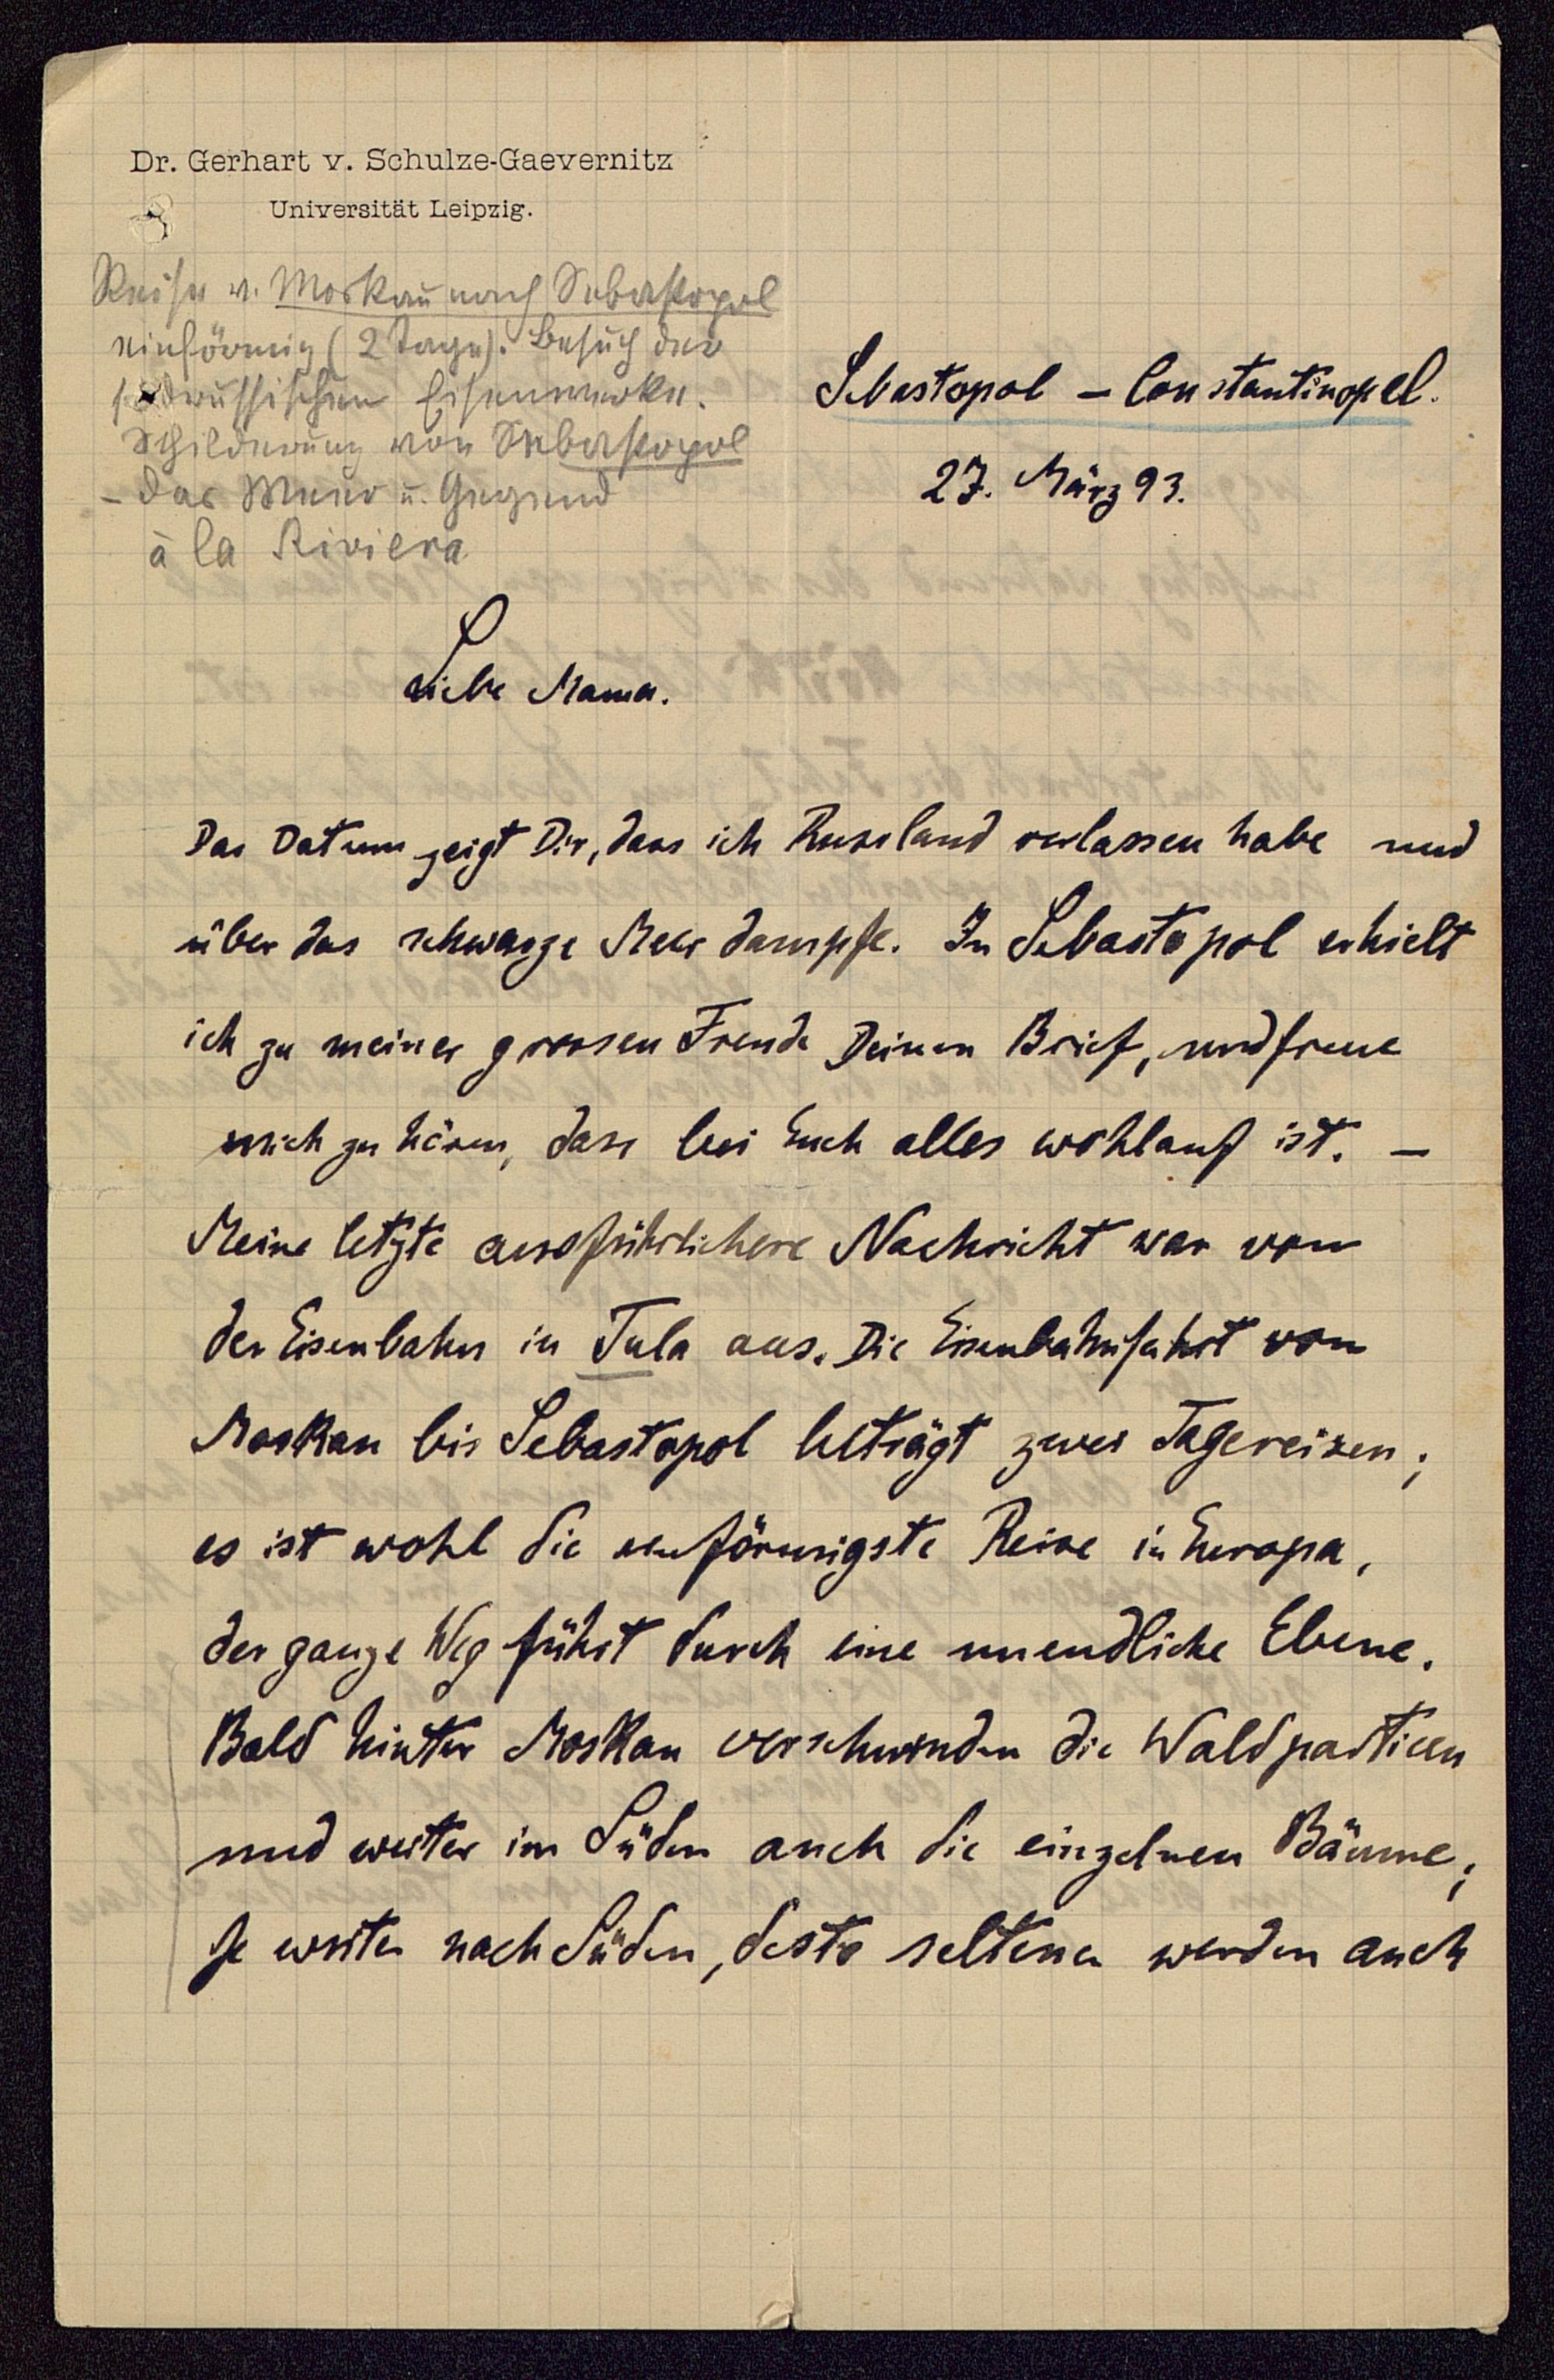 Dr. Gerhart v. Schulze-Gaevernitz
Universität Leipzig.
Reise v. Moskau nach Sebastopol
einförmig (2 Tage). Besuch der
südrussischen Eisenwerke.
Schilderung von Sebastopol
- das Meer u. Gegend
à la Riviera
Sebastopol - Constantinopel.
27. März 93.
Liebe Mama.
Das Datum zeigt Dir, dass ich Russland verlassen habe und
über das schwarze Meer dampfe. In Sebastopol erhielt
ich zu meiner grossen Freude Deinen Brief, und freue
mich zu hören, dass bei Euch alles wohlauf ist. —
Meine letzte ausführlichere Nachricht war von
der Eisenbahn in Tula aus. Die Eisenbahnfahrt von
Moskau bis Sebastopol beträgt zwei Tagereisen;
es ist wohl die einförmigste Reise in Europa,
der ganze Weg führt durch eine unendliche Ebene.
Bald hinter Moskau verschwinden die Waldpartieen
und weiter im Süden auch die einzelnen Bäume;
je weiter nach Süden, desto seltener werden auch